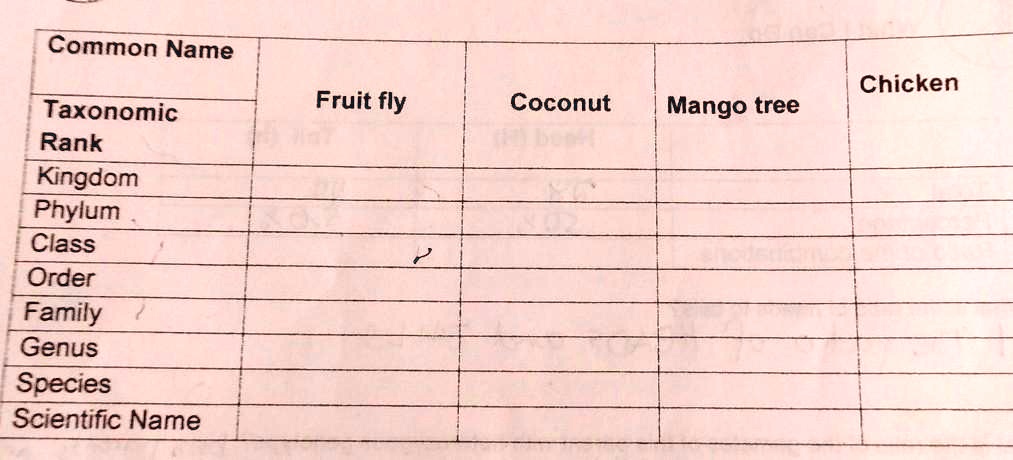 Common Name
Fruit fly
Coconut
Mango tree
Chicken
Taxonomic
Rank
Kingdom
Phylum
Class
Order
Family
Genus
Species
Scientific Name